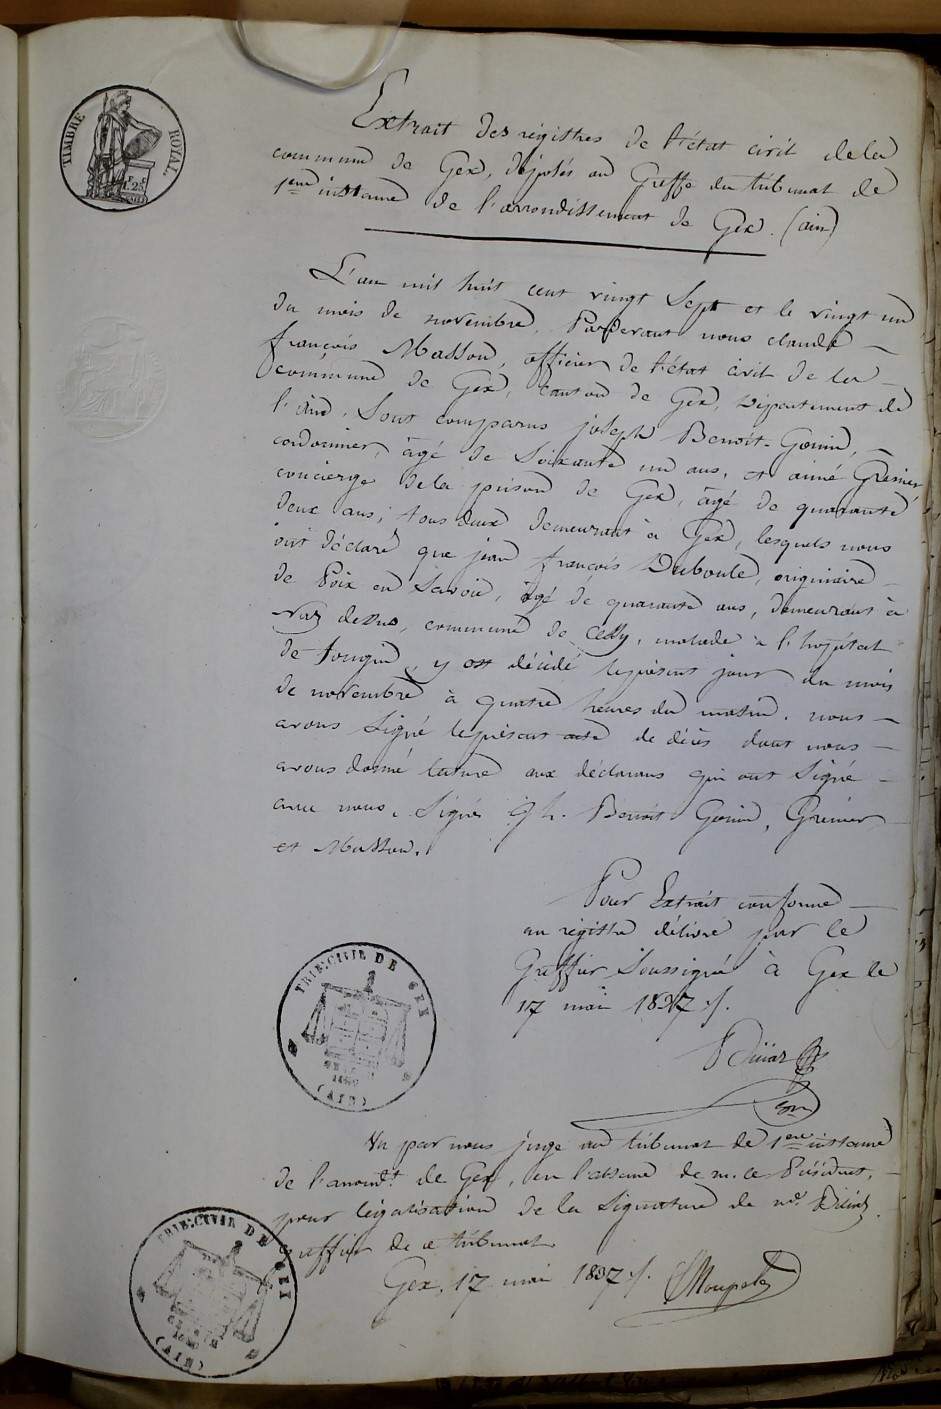 TIMBRE ROYAL
1F. 25C
Extrait des régistres de l'état civil de la
commune de Gex, déposés au Greffe du tribunal de
1ere instance de l'arrondissement de Gex. (ain)
L'an mil huit cent vingt Sept et le vingt un
du mois de novembre, Pardevant nous claude
françois Masson, officier de l'état civil de la
commune de Gex, canton de Gex, Département de
l'ain, Sont comparus joseph Benoit-Gonin,
cordonnier, âgé de Soixante un ans, et aimé Grenier
concierge de la prison de Gex, âgé de quarante
deux ans, tous deux demeurant à Gex, lesquels nous
ont déclaré que jean françois Duboule, originaire
de Poix en Savoie, âgé de quarante ans, demeurant à
dessus, commune de Cessy, malade à l'hopital
de tougin, y est décédé le présent jour du mois
de novembre à quatre heures du matin. nous
avons Signé le présent acte de décès dont nous
avons donné lecture aux déclarans qui ont Signé
avec nous. Signés Jh. Benoit Gonin, Grenier
et Masson.
Pour Extrait conforme
au régistre délivré par le
Greffier Soussigné à Gex le
17 mai 1837 ./.
TRIB: CIVIL DE GEX
(AIN)
Vu par nous juge au tribunal de 1ere instance
de l'arrondt. de Gex, en l'absence de m. le Président,
pour légalisation de la Signature de
greffier de ce tribunal
Gex, 17 mai 1837 ./.
TRIB: CIVIL DE GEX
(AIN)